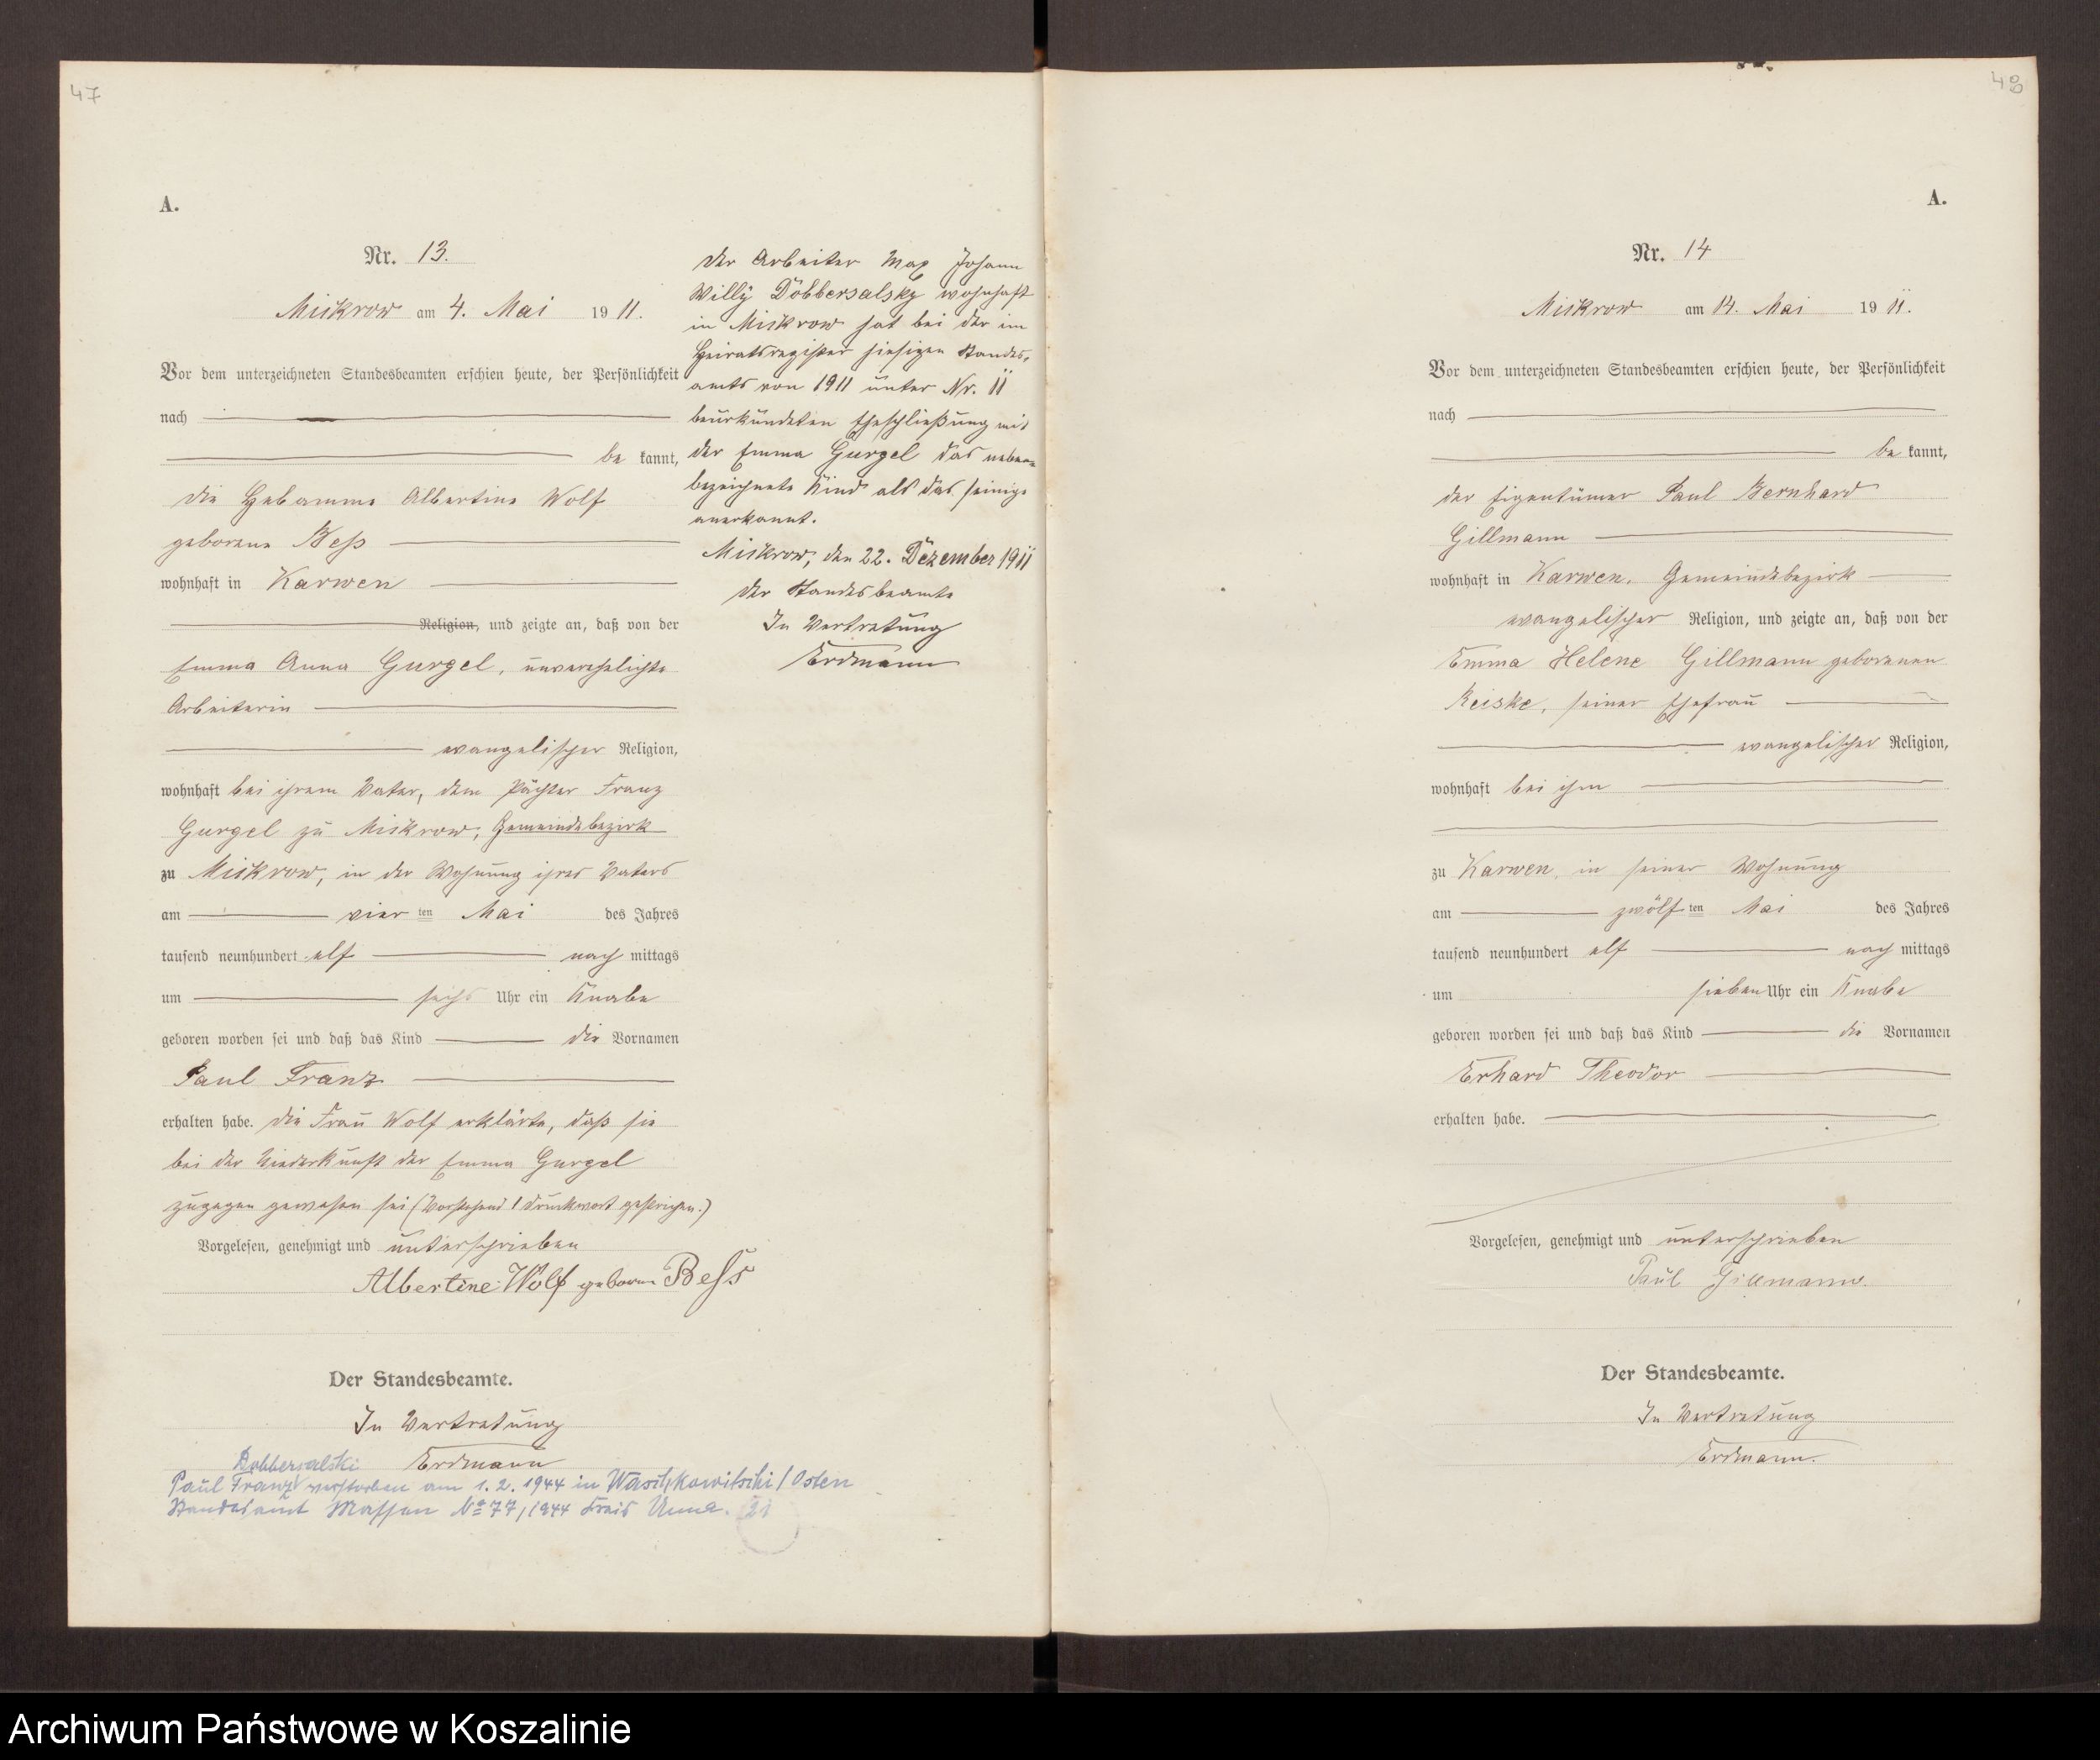 47
A.
Nr. 13.
Mickrow am 4. Mai 1911.
Vor dem unterzeichneten Standesbeamten erschien heute, der Persönlichkeit
nach
be kannt,
die Hebamme Albertine Wolf
geborene Beß
wohnhaft in Karwen
Religion, und zeigte an, daß von der
Emma Anna Gurgel, unverehelichte
Arbeiterin
evangelischer Religion,
wohnhaft bei ihrem Vater, dem Pächter Franz
Gurgel zu Mickrow, Gemeindebezirk
zu Mickrow, in der Wohnung ihres Vaters
am vier ten Mai des Jahres
tausend neunhundert elf nach mittags
um sechs Uhr ein Knabe
geboren worden sei und daß das Kind die Vornamen
Paul Franz
erhalten habe. Die Frau Wolf erklärte, daß sie
bei der Niederkunft der Emma Gurgel
zugegen gewesen sei (Vorstehend 1 Druckwort gestrichen.)
Vorgelesen, genehmigt und unterschrieben
Albertine Wolf geborene Beß
Der Standesbeamte.
In Vertretung
Erdmann
Dobbersalski
Paul Franz verstorben am 1.2.1944 in Waschkowitschi / Osten
Standesamt Massen № 77/1944 Kreis Unna. 21
Der Arbeiter Max Johann
Willy Dobbersalsky wohnhaft
in Mickrow hat bei der im
Heiratsregister hiesigen Standes-
amts von 1911 unter Nr. 11
beurkundeten Eheschließung mit
der Emma Gurgel das neben-
bezeichnete Kind als das seinige
anerkannt.
Mickrow, den 22. Dezember 1911
Der Standesbeamte
In Vertretung
Erdmann
48
A.
Nr. 14
Mickrow am 14. Mai 1911.
Vor dem unterzeichneten Standesbeamten erschien heute, der Persönlichkeit
nach
be kannt,
der Eigentümer Paul Bernhard
Gillmann
wohnhaft in Karwen, Gemeindebezirk
evangelischer Religion, und zeigte an, daß von der
Emma Helene Gillmann geborenen
Reiske, seiner Ehefrau
evangelischer Religion,
wohnhaft bei ihm
zu Karwen, in seiner Wohnung
am zwölf ten Mai des Jahres
tausend neunhundert elf nach mittags
um sieben Uhr ein Knabe
geboren worden sei und daß das Kind die Vornamen
Erhard Theodor
erhalten habe.
Vorgelesen, genehmigt und unterschrieben
Paul Gillmann.
Der Standesbeamte.
In Vertretung
Erdmann.
Archiwum Państwowe w Koszalinie